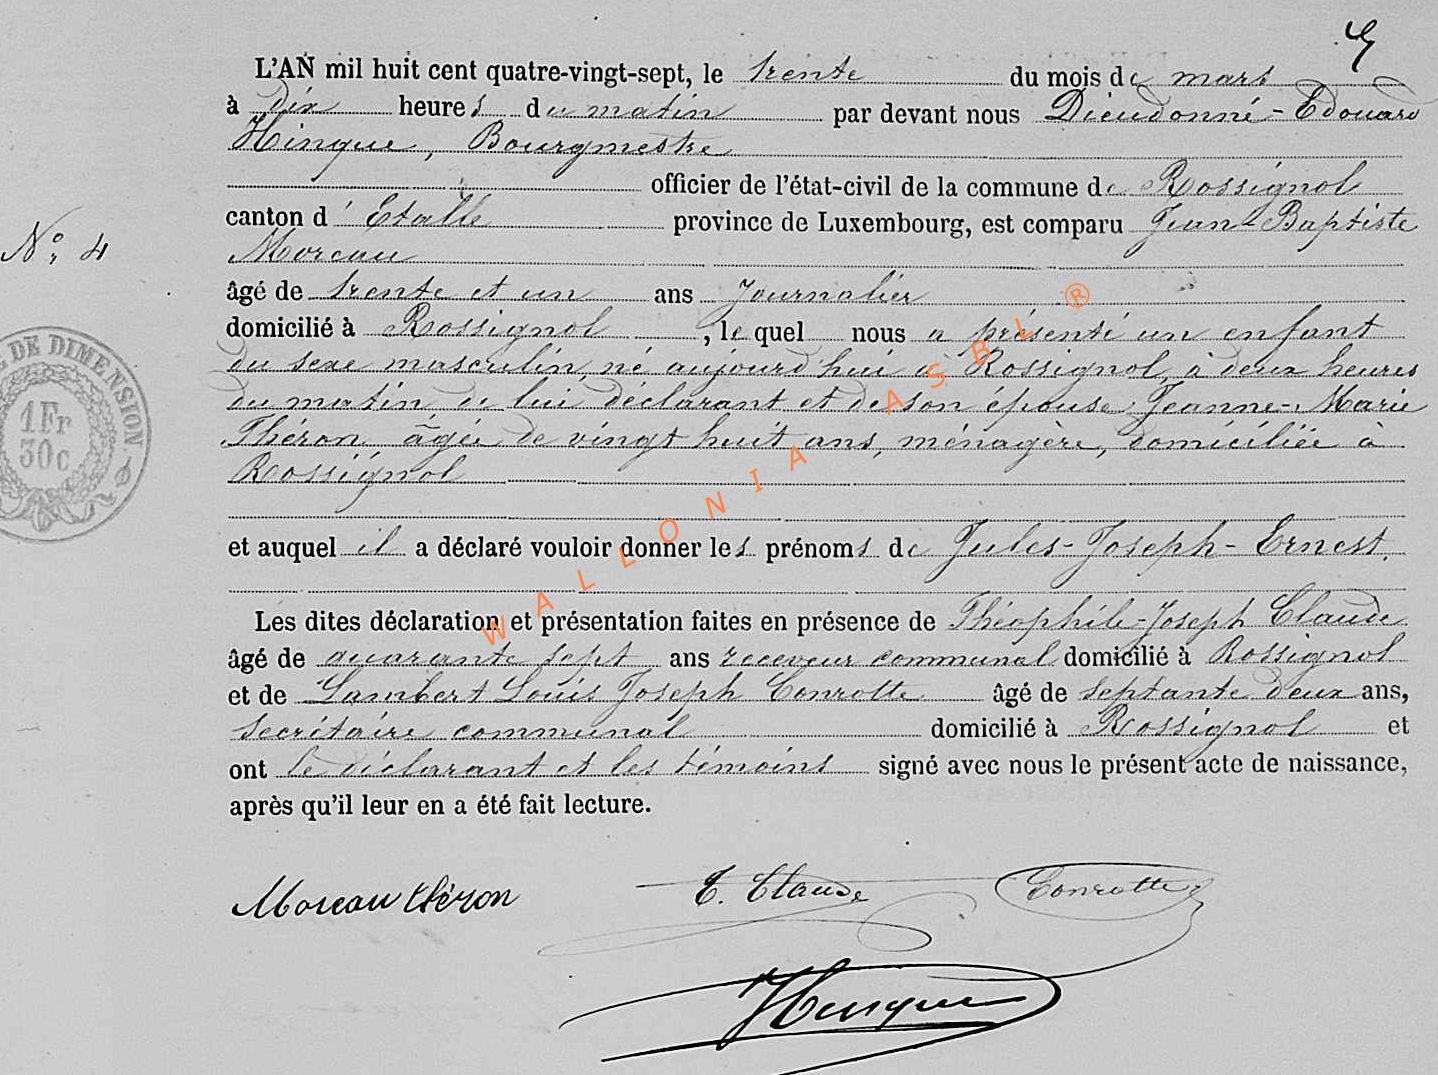 L'AN mil huit cent quatre-vingt-sept, le trente du mois de mars
à dix heures du matin par devant nous Dieudonné-Edouard
Hinque, Bourgmestre
officier de l'état-civil de la commune de Rossignol
canton d'Etalle province de Luxembourg, est comparu Jean-Baptiste
Moreau
âgé de trente et un ans Journalier
domicilié à Rossignol, lequel nous a présenté un enfant
du sexe masculin, né aujourd'hui à Rossignol, à deux heures
du matin, de lui déclarant et de son épouse Jeanne-Marie
Théron âgée de vingt huit ans, ménagère, domiciliée à
Rossignol
et auquel il a déclaré vouloir donner les prénoms de Jules-Joseph-Ernest.
Les dites déclaration et présentation faites en présence de Théophile-Joseph Claude
âgé de quarante sept ans receveur communal domicilié à Rossignol
et de Lambert Louis Joseph Conrotte âgé de septante deux ans,
secrétaire communal domicilié à Rossignol et
ont le déclarant et les témoins signé avec nous le présent acte de naissance,
après qu'il leur en a été fait lecture.
Moreau théron T. Claude Conrotte
Hinque
No. 4
DE DIMENSION
1 Fr
30c
WALLONIA ASBL ®